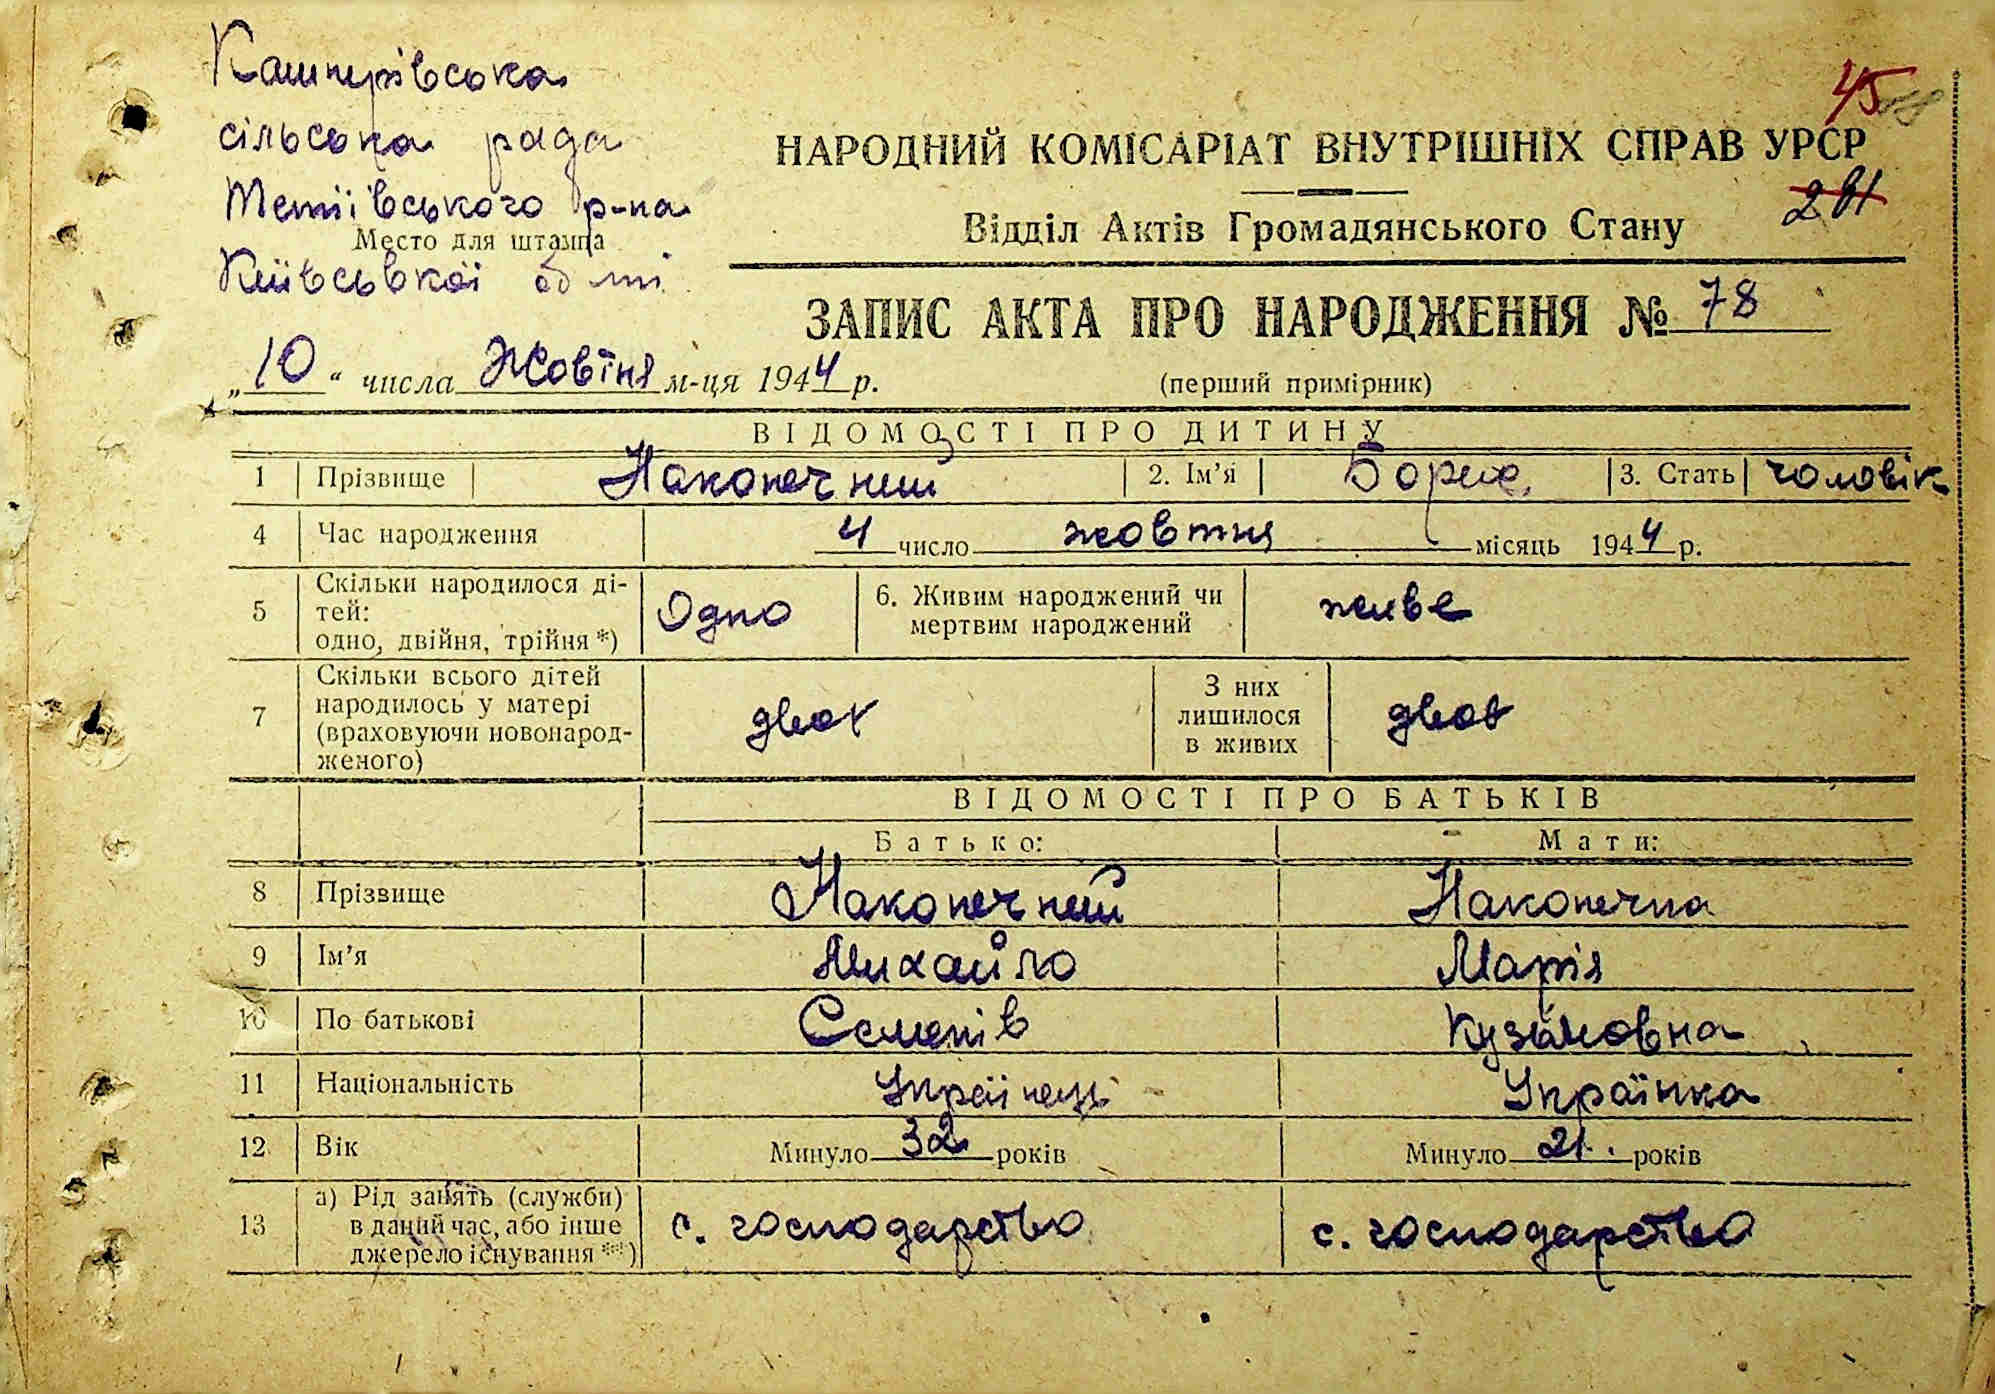 Кашперівська
45
сільська рада
НАРОДНИЙ КОМІСАРІАТ ВНУТРІШНІХ СПРАВ УРСР
Тетіївського р-на
Відділ Актів Громадянського Стану
Место для штампа
Київської обл-ті
ЗАПИС АКТА ПРО НАРОДЖЕННЯ № 78
„10“ числа Жовтня м-ця 1944 р.
(перший примірник)
ВІДОМОСТІ ПРО ДИТИНУ
1 Прізвище Наконечний 2. Ім’я Борис 3. Стать чоловік
4 Час народження 4 число жовтня місяць 1944 р.
5 Скільки народилося ді-
тей:
одно, двійня, трійня *) Одно 6. Живим народжений чи
мертвим народжений живе
7 Скільки всього дітей
народилось у матері
(враховуючи новонарод-
женого) двох З них
лишилося
в живих двоє
ВІДОМОСТІ ПРО БАТЬКІВ
Батько: Мати:
8 Прізвище Наконечний Наконечна
9 Ім’я Михайло Марія
10 По батькові Семенів Кузьмовна
11 Національність Українець Українка
12 Вік Минуло 32 років Минуло 21 років
13 а) Рід занять (служби)
в даний час, або інше
джерело існування **) с. господарство с. господарство